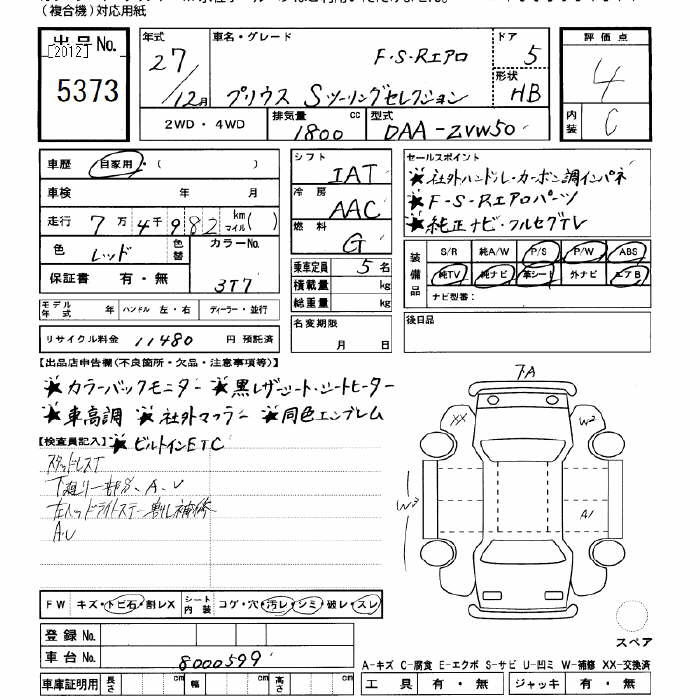 (複合機)対応用紙
出品No. [2012] 5373
年式 27/12月
車名・グレード F・S・Rエアロ プリウス Sツーリングセレクション
ドア 5
形状 HB
評価点 4
内装 C
2WD・4WD
排気量 1800 cc
型式 DAA-ZVW50
車歴 自家用・( )
車検 年 月
走行 7万4千982 km マイル( )
色 レッド 色替
カラーNo. 3T7
保証書 有・無
モデル年式 年 ハンドル 左・右 ディーラー・並行
リサイクル料金 11480 円 預託済
シフト IAT
冷房 AAC
燃料 G
乗車定員 5名
積載量 kg
総重量 kg
名変期限 月 日
セールスポイント
★社外ハンドル・カーボン調インパネ
★F・S・Rエアロパーツ
★純正ナビ・フルセグTV
装備品 S/R 純A/W P/S P/W ABS
純TV 純ナビ 革シート 外ナビ エアB
ナビ型番:
後日品
【出品店申告欄(不良箇所・欠品・注意事項等)】
★カラーバックモニター ★黒レザーシート・シートヒーター
★車高調 ★社外マフラー ★同色エンブレム
【検査員記入】 ★ビルトインETC
スタッドレスT
下廻り一部分、A、U
左ヘッドライトステー割レ補修
A・U
下A
XX
W2
W2
A1
FW キズ・トビ石・割レX
シート内装 コゲ・穴・汚レ・シミ・破レ・スレ
登録No.
車台No. 8000599
車庫証明用 長さ cm 幅 cm 高さ cm
スペア
A-キズ C-腐食 E-エクボ S-サビ U-凹ミ W-補修 XX-交換済
工具 有・無 ジャッキ 有・無